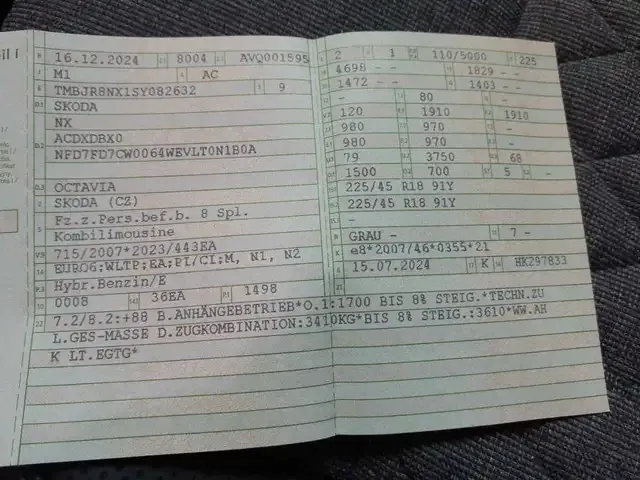 B 16.12.2024 2.1 8004 2.2 AVQ001595
J M1 4 AC
E TMBJR8NX1SY082632 3 9
D.1 SKODA
D.2 NX
ACDXDBX0
NFD7FD7CW0064WEVLT0N1B0A
D.3 OCTAVIA
2 SKODA (CZ)
5 Fz.z.Pers.bef.b. 8 Spl.
Kombilimousine
V.9 715/2007*2023/443EA
14 EURO6;WLTP;EA;PI/CI;M, N1, N2
P.3 Hybr.Benzin/E
10 0008 14.1 36EA P.1 1498
22 7.2/8.2:+88 B.ANHÄNGEBETRIEB*O.1:1700 BIS 8% STEIG.*TECHN.ZU
L.GES-MASSE D.ZUGKOMBINATION:3410KG*BIS 8% STEIG.:3610*WW.AH
K LT.EGTG*
L 2 9 1 110/5000 T 225
18 4698 - - 19 1829 - -
20 1472 - - 1403 - -
- 80 -
120 1910 1910
980 970 -
980 970 -
79 3750 68
1500 700 5 -
225/45 R18 91Y
225/45 R18 91Y
-
R GRAU - 11 7 -
K e8*2007/46*0355*21
6 15.07.2024 17 K 16 HK297833
21